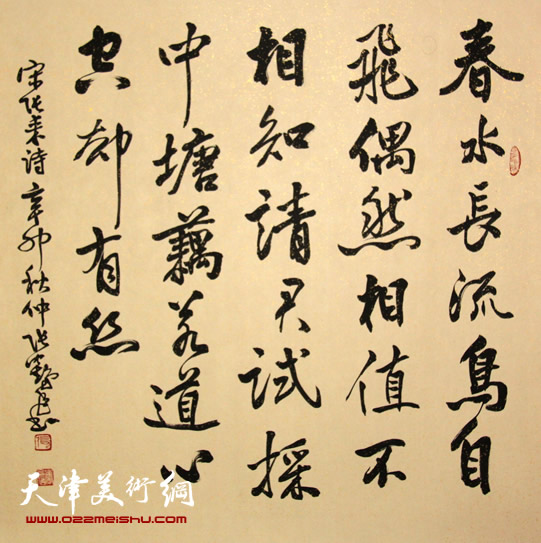 春水長流鳥自
飛偶然相值不
相知請君試採
中塘藕若道心
空却有丝
宋张耒诗辛卯秋仲张
天津美術網
www.022meishu.com